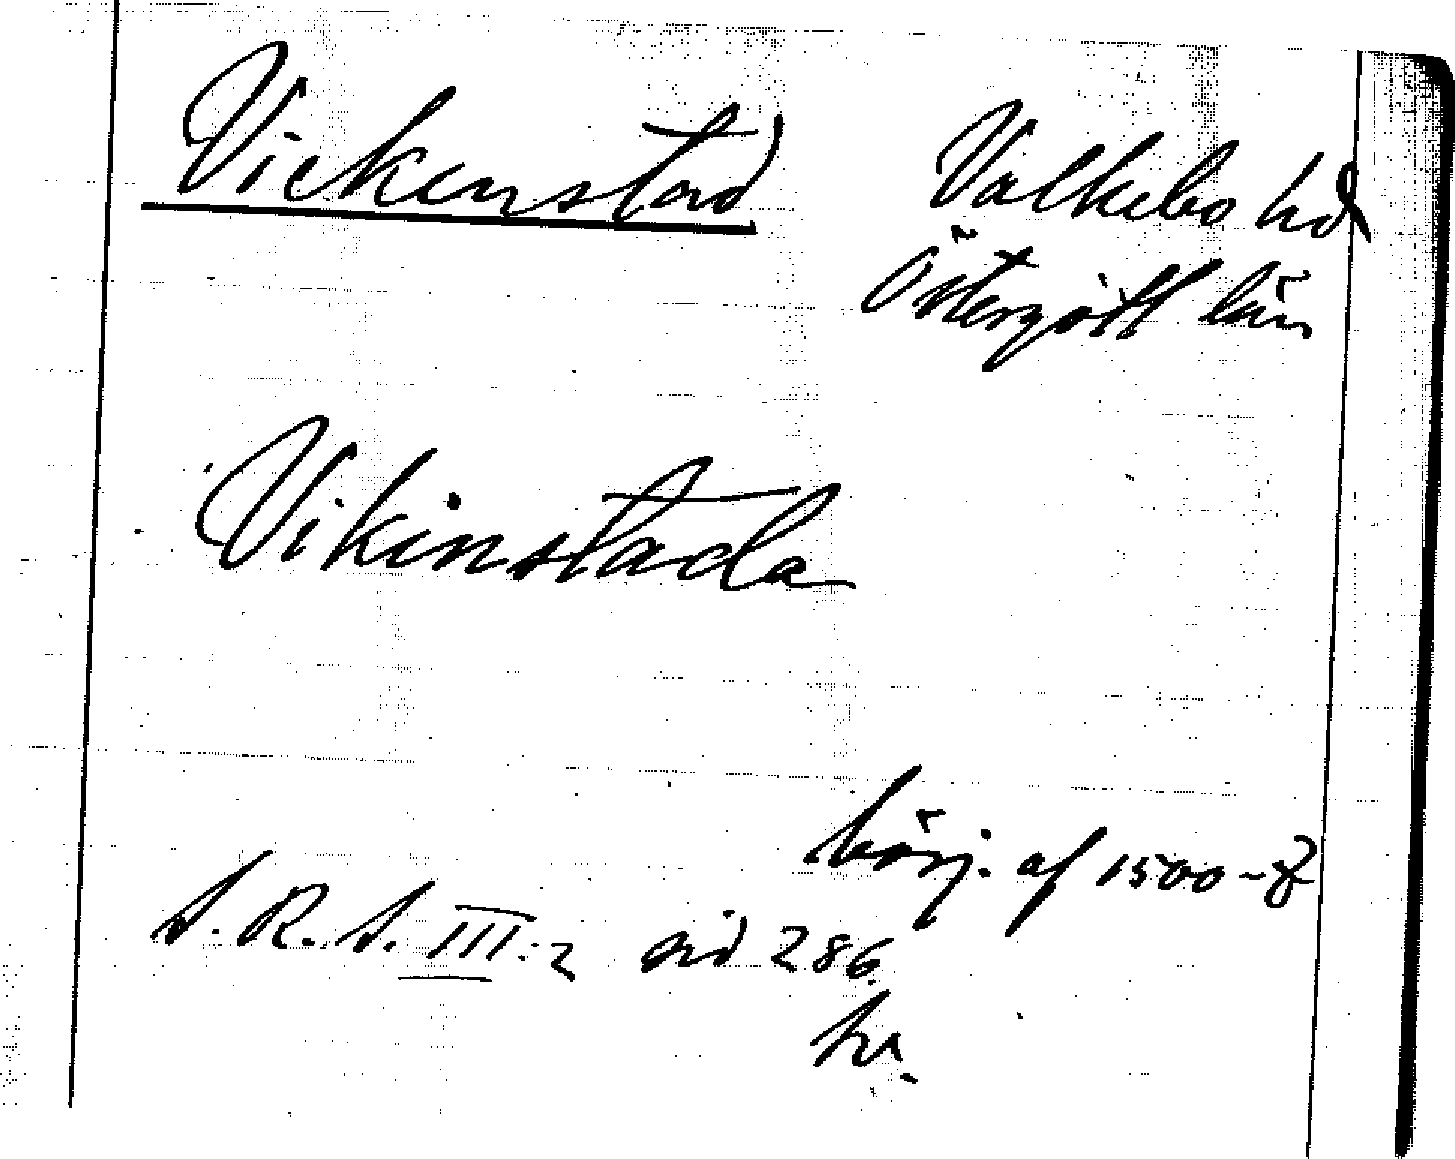 Vickenstad
Valkebo hd
Östergötl län
Vikinstada
börj. af 1500-t
S.R.S. III:2 sid 286.
hr.